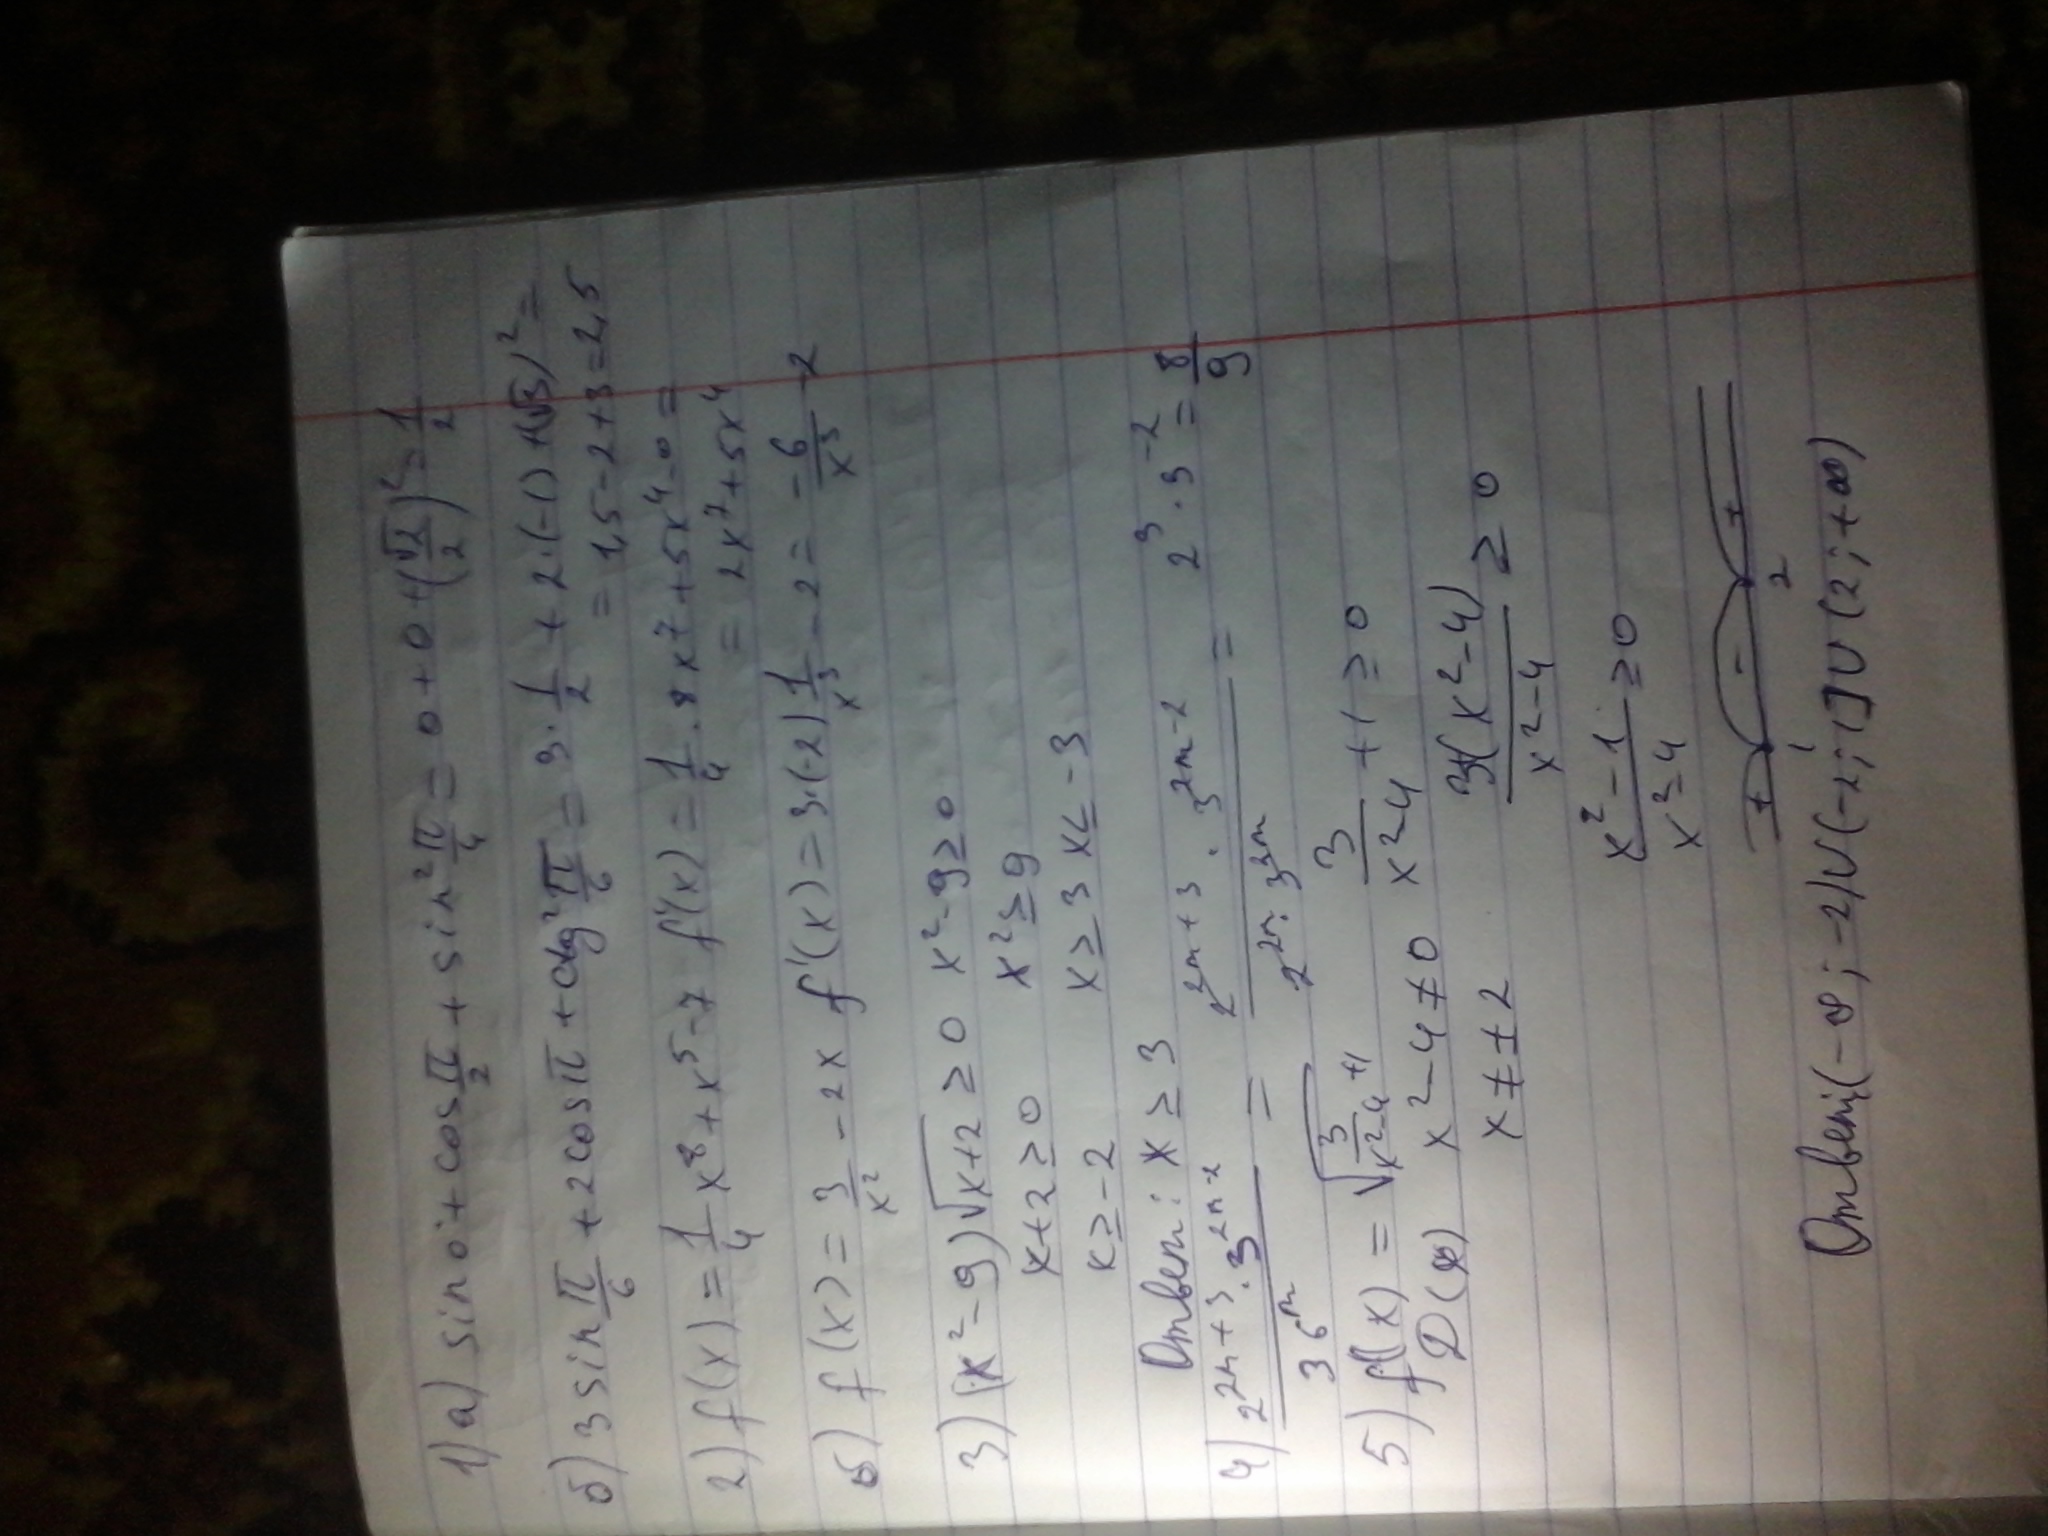 1) а) sin 0 + cos π/2 + sin² π/4 = 0 + 0 + (√2/2)² = 1/2
б) 3 sin π/6 + 2 cos π + ctg² π/6 = 3 · 1/2 + 2 · (-1) + (√3)² =
= 1,5 - 2 + 3 = 2,5
2) f(x) = 1/4 x⁸ + x⁵ - 7 f'(x) = 1/4 · 8x⁷ + 5x⁴ - 0 =
= 2x⁷ + 5x⁴
б) f(x) = 3/x² - 2x f'(x) = 3·(-2) 1/x³ - 2 = -6/x³ - 2
3) (x² - 9)√x+2 ≥ 0 x² - 9 ≥ 0
x+2 ≥ 0 x² ≥ 9
x ≥ -2 x ≥ 3 x ≤ -3
Ответ: x ≥ 3
4) 2²ᵐ⁺³ · 3²ᵐ⁻² / 36ᵐ = 2²ᵐ⁺³ · 3²ᵐ⁻² / 2²ᵐ · 3²ᵐ = 2³ · 3⁻² = 8/9
5) f(x) = √3/x²-4 +1 3/x²-4 + 1 ≥ 0
D(x) x² - 4 ≠ 0 3+(x² - 4)/x² - 4 ≥ 0
x ≠ ±2
x² - 1/x² - 4 ≥ 0
+ - +
1 2
Ответ: (-∞; -2) U (-2; 1] U (2; +∞)